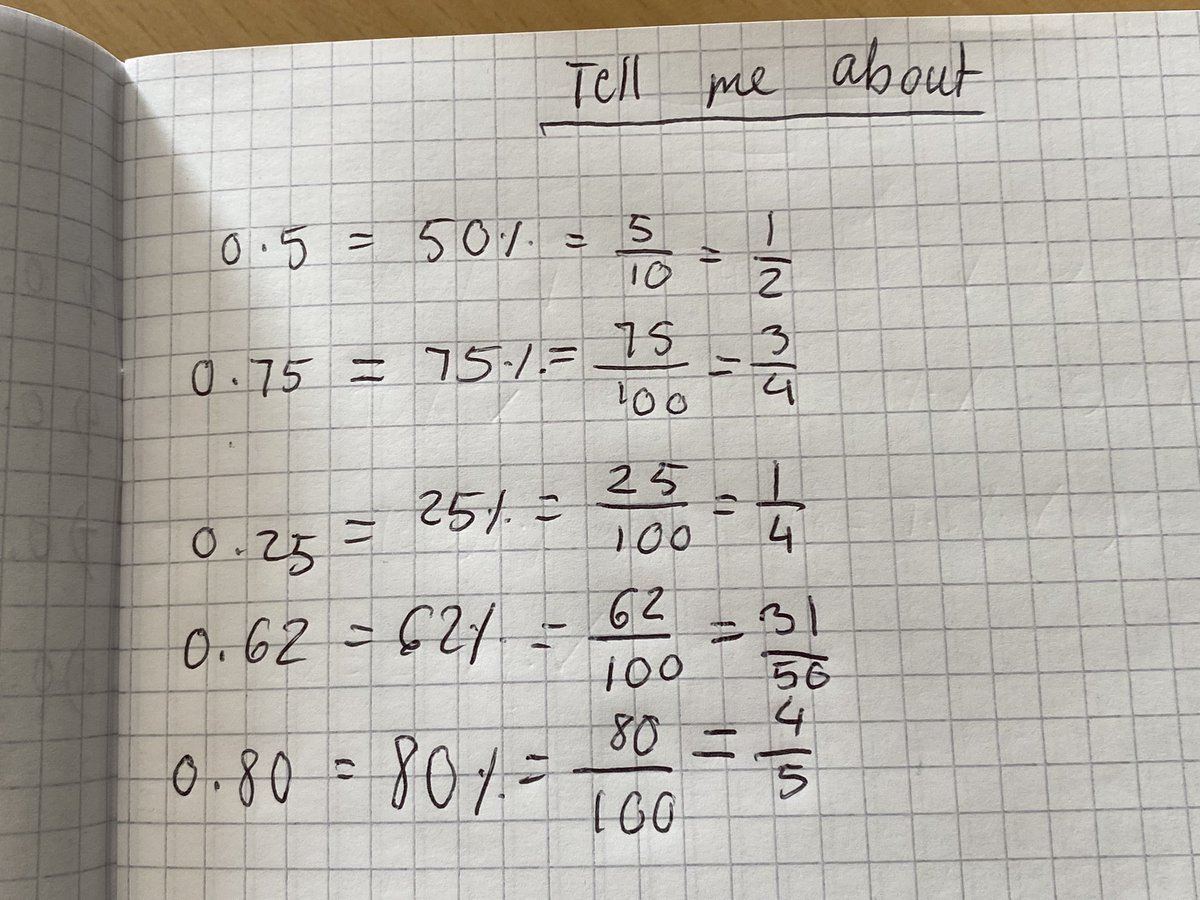 Tell me about
0.5 = 50% = 5/10 = 1/2
0.75 = 75% = 75/100 = 3/4
0.25 = 25% = 25/100 = 1/4
0.62 = 62% = 62/100 = 31/50
0.80 = 80% = 80/100 = 4/5